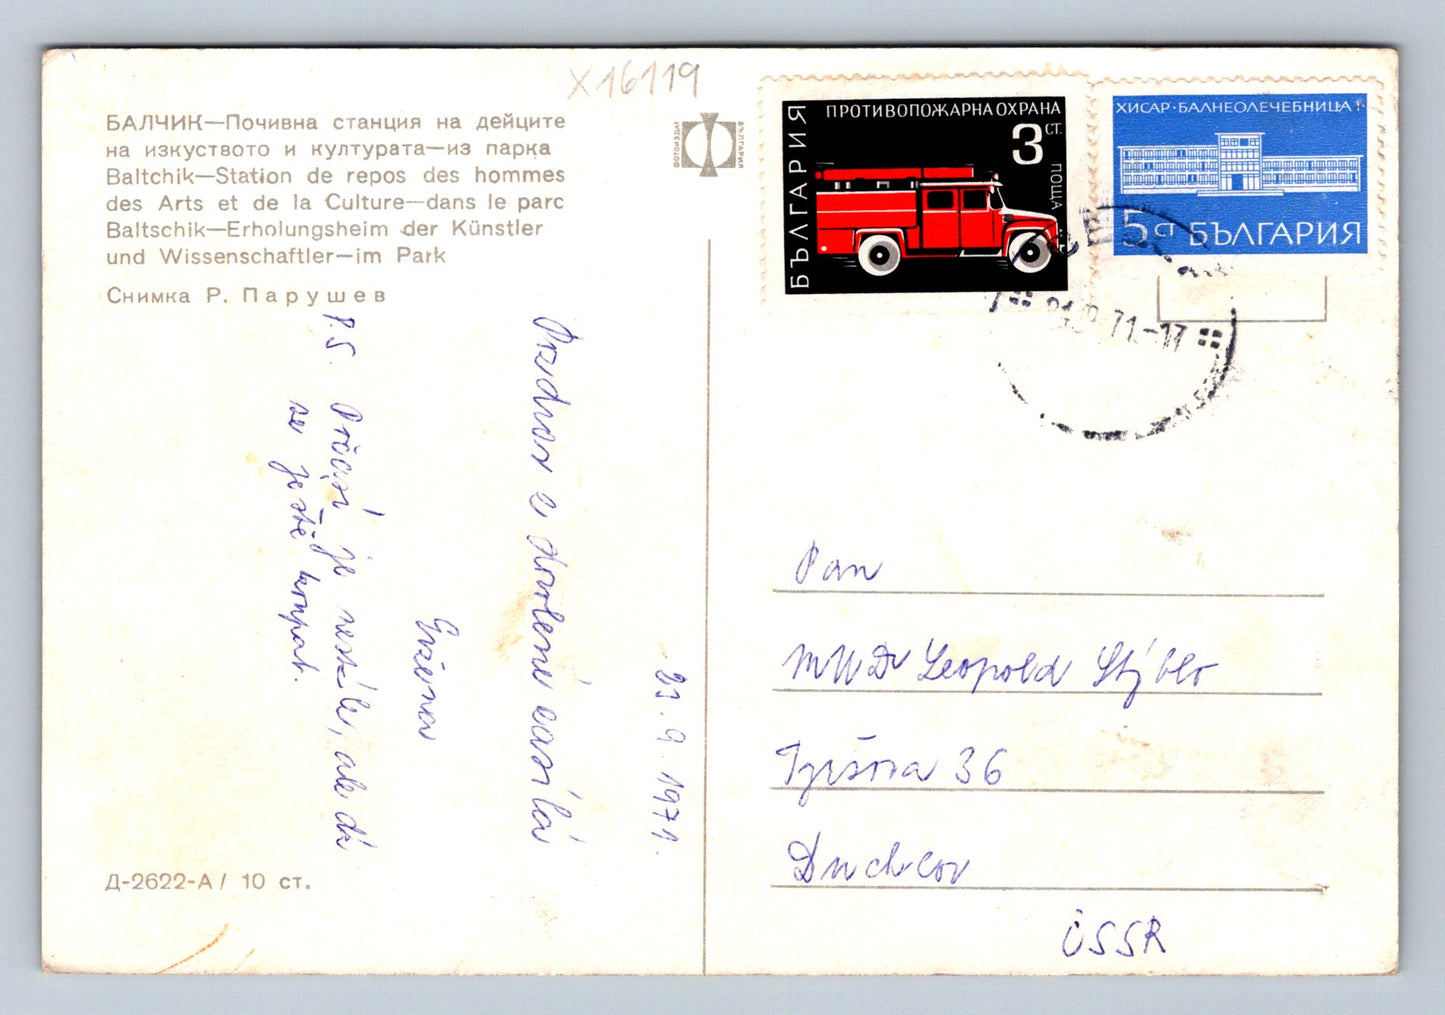 X16119
БАЛЧИК—Почивна станция на дейците
на изкуството и културата—из парка
Baltchik—Station de repos des hommes
des Arts et de la Culture—dans le parc
Baltschik—Erholungsheim der Künstler
und Wissenschaftler—im Park
Снимка Р. Парушев
ФОТОИЗДАТ
БЪЛГАРИЯ
ПРОТИВОПОЖАРНА ОХРАНА
3 СТ.
ПОЩА
БЪЛГАРИЯ
ХИСАР·БАЛНЕОЛЕЧЕБНИЦА
5 СТ БЪЛГАРИЯ
71.-17
23.9.1971.
Pozdrav z dovolené zasílá
P.S. Počasí je nestálé, ale dá
se ještě koupat.
Pan
MUDr Leopold Stýblo
36
Duchcov
ČSSR
Д-2622-А / 10 ст.